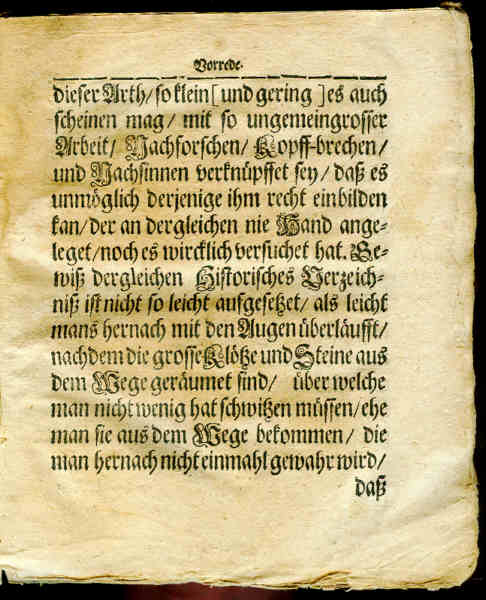 Vorrede.
dieser Arth/ so klein [ und gering ] es auch
scheinen mag/ mit so ungemeingrosser
Arbeit/ Nachforschen/ Kopff-brechen/
und Nachsinnen verknüpffet sey/ daß es
unmöglich derjenige ihm recht einbilden
kan/ der an dergleichen nie Hand ange-
leget/ noch es wircklich versuchet hat. Ge-
wiß dergleichen Historisches Verzeich-
niß ist nicht so leicht aufgesetzet/ als leicht
mans hernach mit den Augen überläufft/
nachdem die grosse Klötze und Steine aus
dem Wege geräumet sind/ über welche
man nicht wenig hat schwitzen müssen/ ehe
man sie aus dem Wege bekommen/ die
man hernach nicht einmahl gewahr wird/
daß